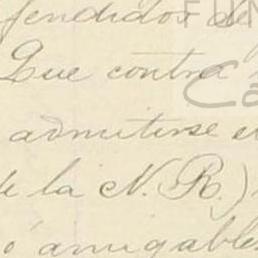 fendidos de
FUN
Que contra
Ca
admitirse e
de la N. R.)
ó amigable